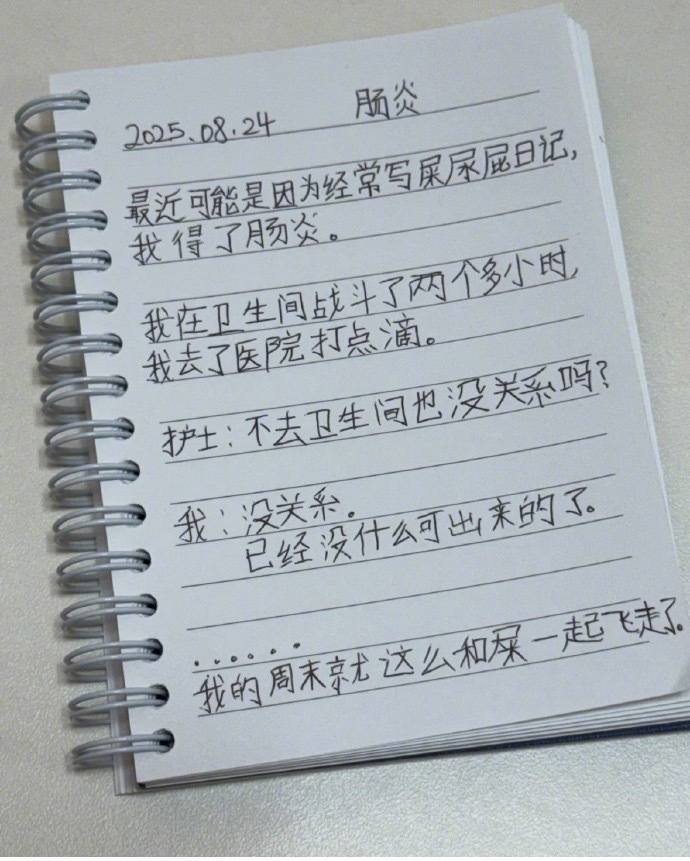 2025.08.24 肠炎
最近可能是因为经常写屎尿屁日记，
我得了肠炎。
我在卫生间战斗了两个多小时，
我去了医院打点滴。
护士：不去卫生间也没关系吗？
我：没关系。
已经没什么可出来的了。
......
我的周末就这么和屎一起飞走了。